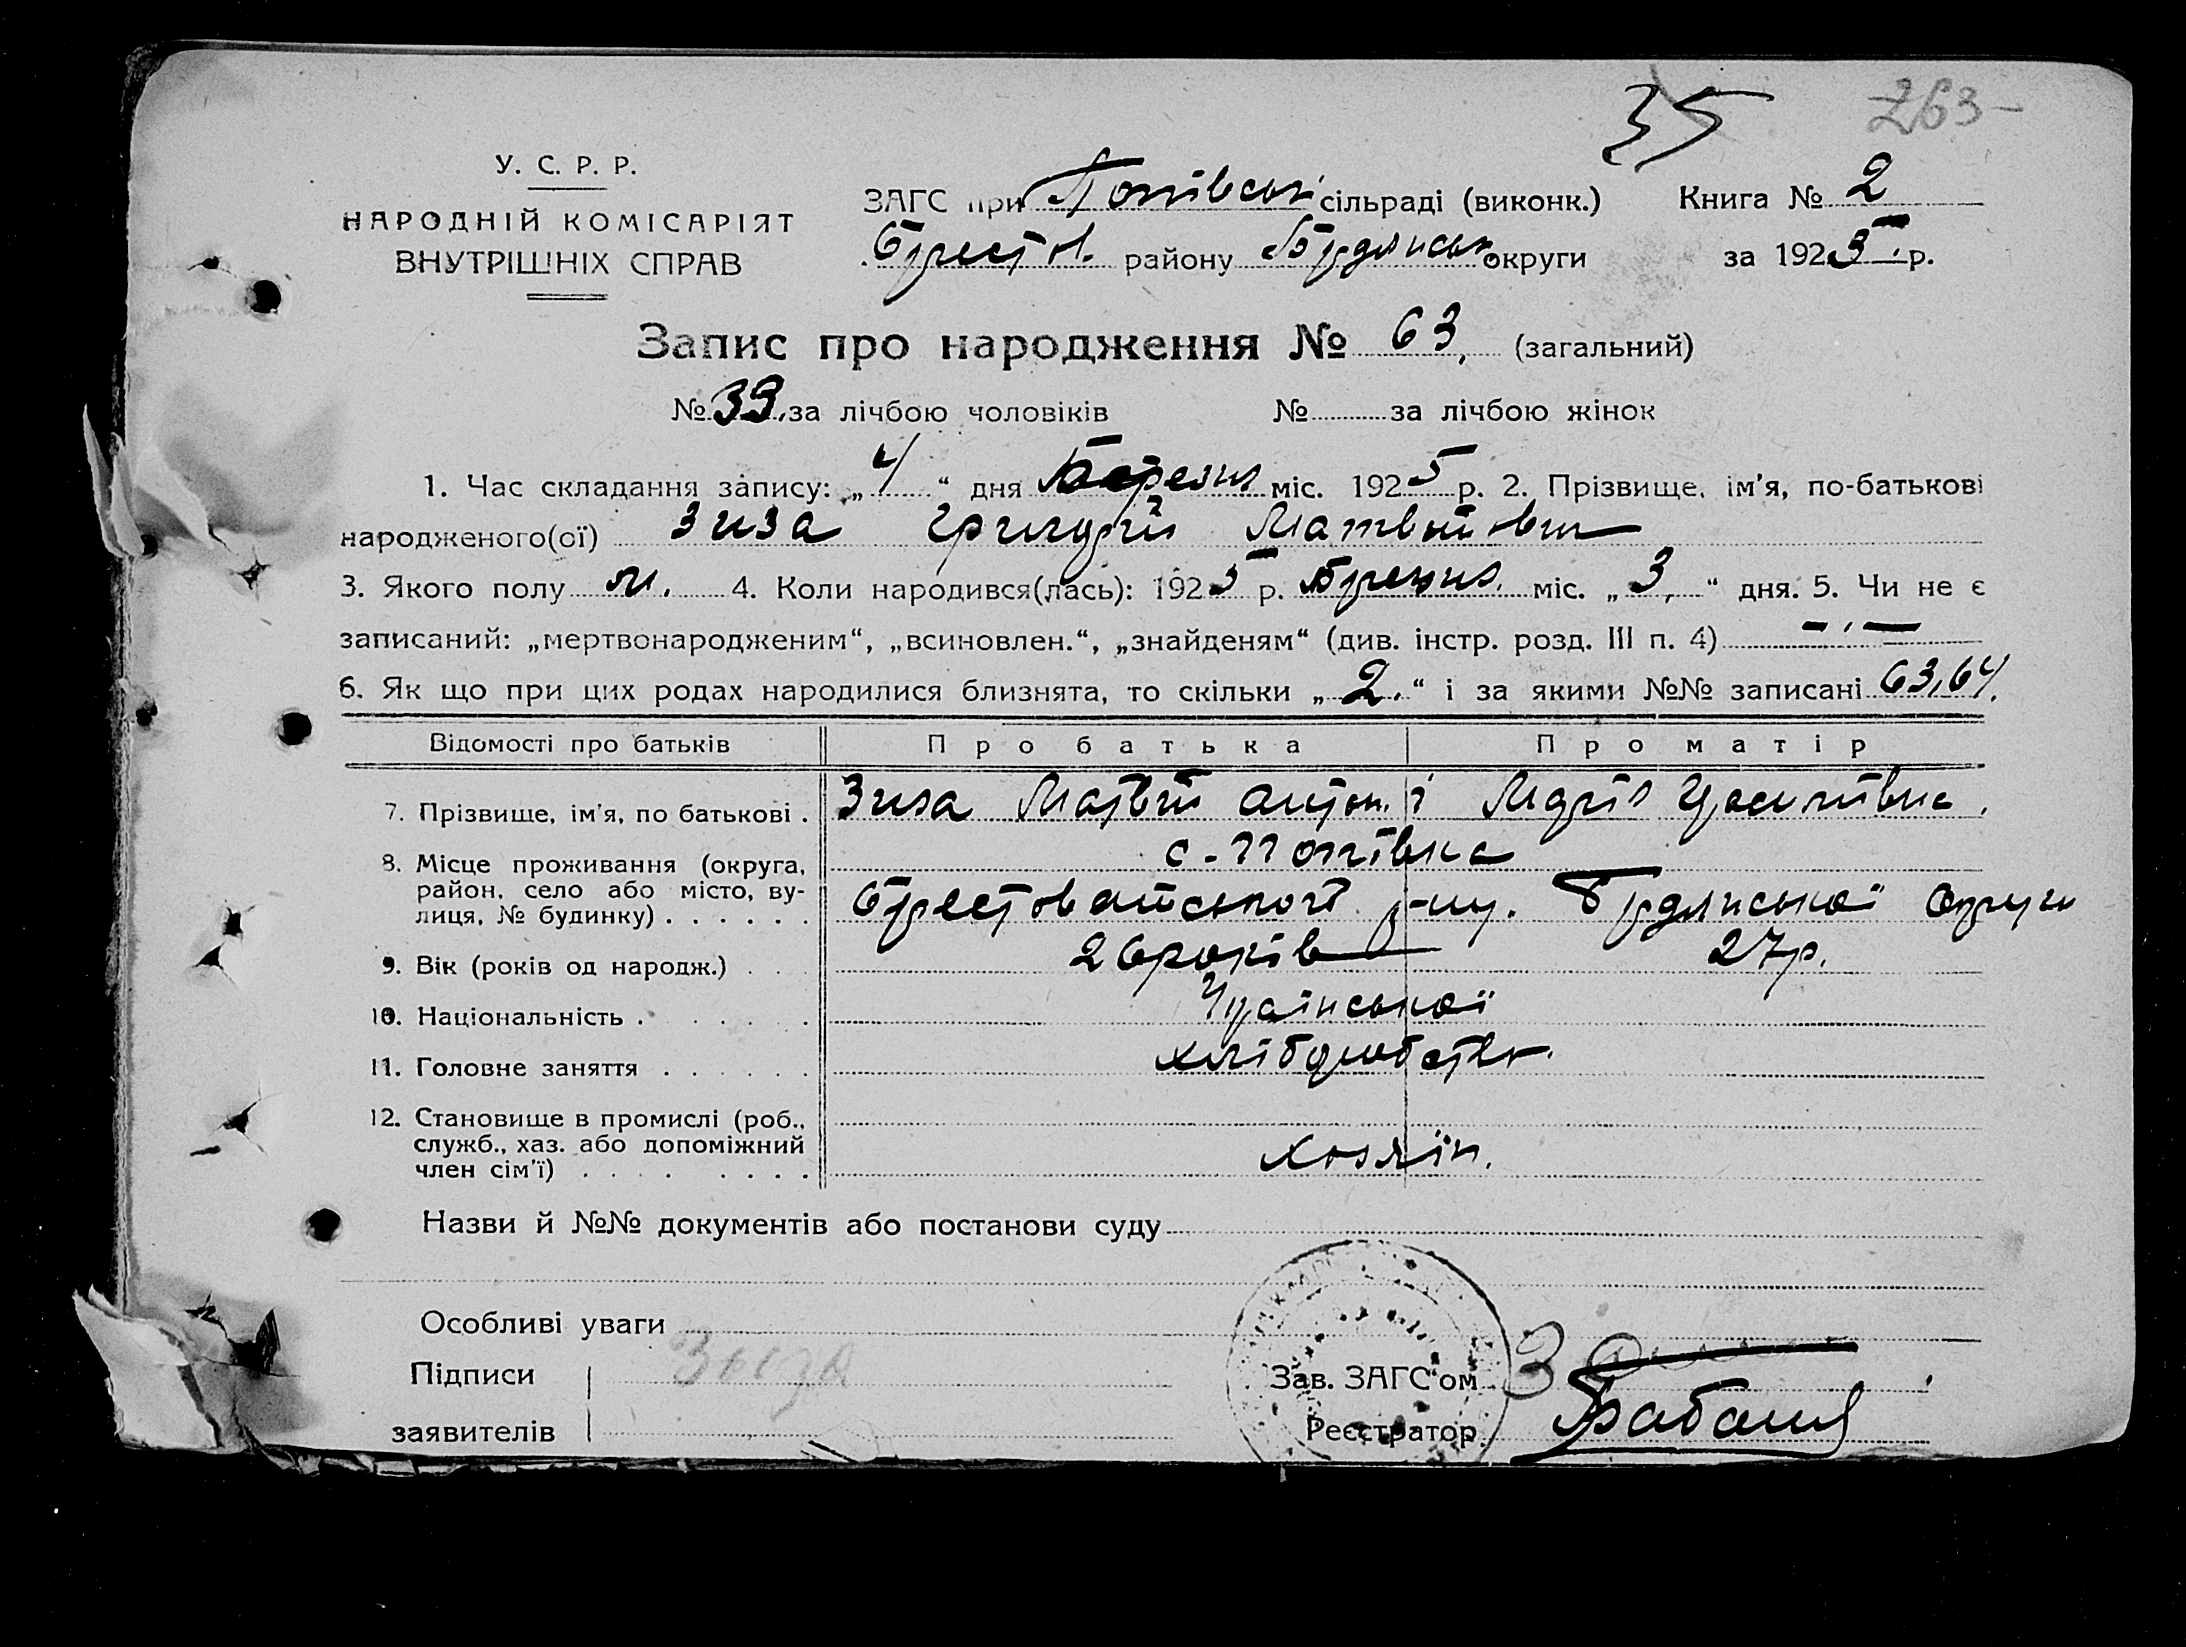 35 263
У. С. Р. Р.
НАРОДНІЙ КОМІСАРІЯТ
ВНУТРІШНІХ СПРАВ
ЗАГС при Попівськ. сільраді (виконк.) Книга № 2
району Бердянськ. округи за 1925 р.
Запис про народження № 63, (загальний)
№ 39, за лічбою чоловіків № за лічбою жінок
1. Час складання запису: „4“ дня Березня міс. 1925 р. 2. Прізвище, ім'я, по-батькові
народженого(ої) Зиза Григорій Матвійович
3. Якого полу м. 4. Коли народився(лась): 1925 р. Березня міс. „3,“ дня. 5. Чи не є
записаний: „мертвонародженим“, „всиновлен.“, „знайденям“ (див. інстр. розд. III п. 4) -,-
6. Як що при цих родах народилися близнята, то скільки „2.“ і за якими №№ записані 63,64.
Відомості про батьків Про батька Про матір
7. Прізвище, ім'я, по батькові . Зиза Матвій Антон. і Марія
8. Місце проживання (округа, район, село або місто, вулиця, № будинку) . . . . . . с. Попівка
р-ну. Бердянської округи
9. Вік (років од народж.) . . . 26 років 27 р.
10. Національність . . . . . . Української
11. Головне заняття . . . . . . хліборобств.
12. Становище в промислі (роб., служб., хаз. або допоміжний член сім'ї) . . . . . . . . Хозяїн.
Назви й №№ документів або постанови суду
Особливі уваги
Підписи Зиза Зав. ЗАГС'ом
заявителів Реєстратор